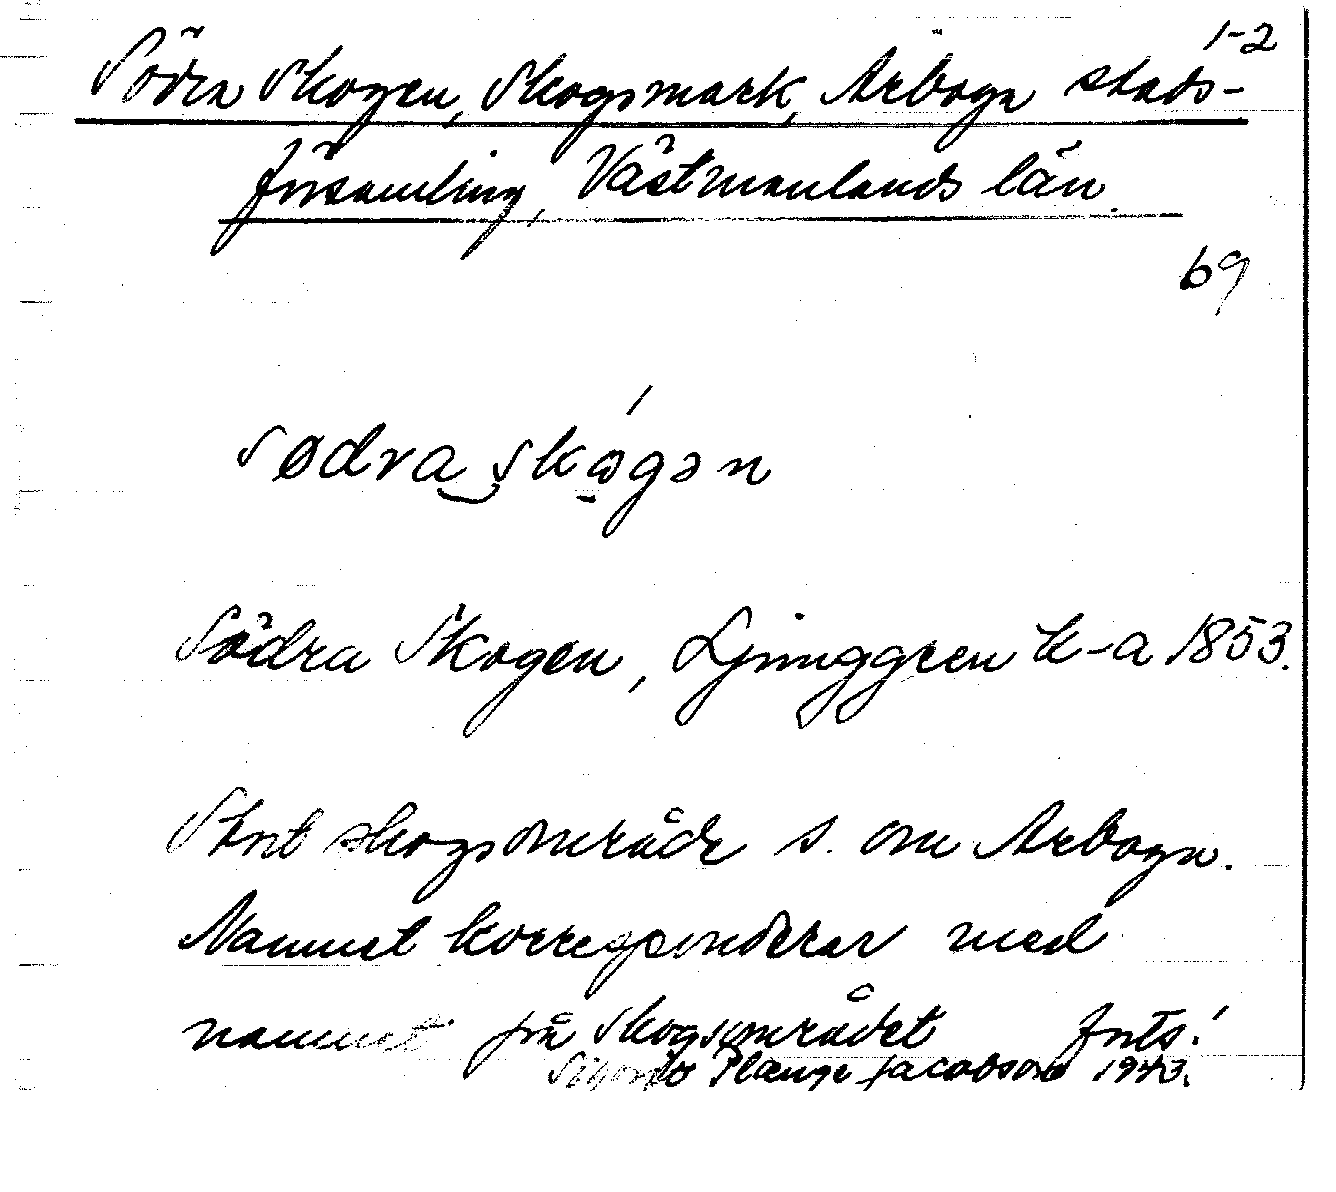 1-2
Södra Skogen, Skogsmark, Arboga stads-
församling, Västmanlands län.
69
södra skógən
Södra Skogen, Ljunggren k-a 1853.
Stort skogsområde s. om Arboga.
Namnet korresponderar med
namnet på skogsområdet forts!
Plange Jacobson 1943.